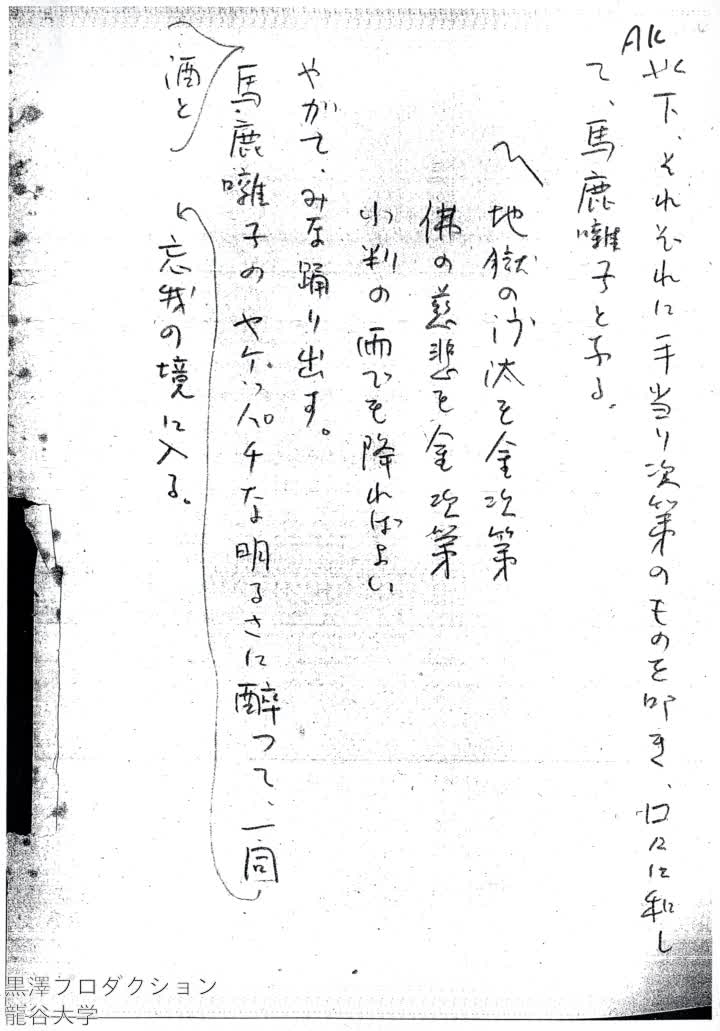 AK
以下、それぞれに手当り次第のものを叩き、口々に和し
て、馬鹿囃子となる。
地獄の沙汰も金次第
佛の慈悲も金次第
小判の雨でも降ればよい
やがて、みな踊り出す。
馬鹿囃子のヤケッパチな明るさに醉つて、一同
酒と
忘我の境に入る。
黒澤プロダクション
龍谷大学